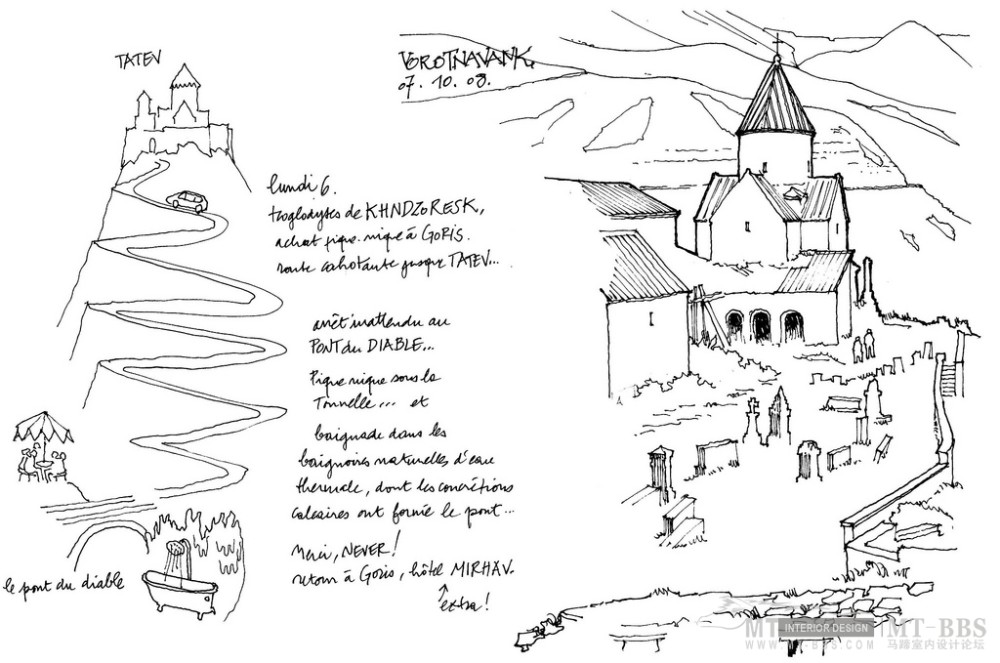 TATEV
VOROTNAVANK.
07. 10. 08.
lundi 6.
troglodytes de KHNDZORESK,
achat pique-nique à GORIS.
route cahotante jusque TATEV...
arrêt inattendu au
PONT du DIABLE...
Pique nique sous la
Tonnelle... et
baignade dans les
baignoires naturelles d'eau
thermale, dont les concrétions
calcaires ont formé le pont...
Merci, NEVER!
retour à Goris, hôtel MIRHAV.
extra!
le pont du diable
MT INTERIOR DESIGN MT-BBS
WWW.MT-BBS.COM 马蹄室内设计论坛